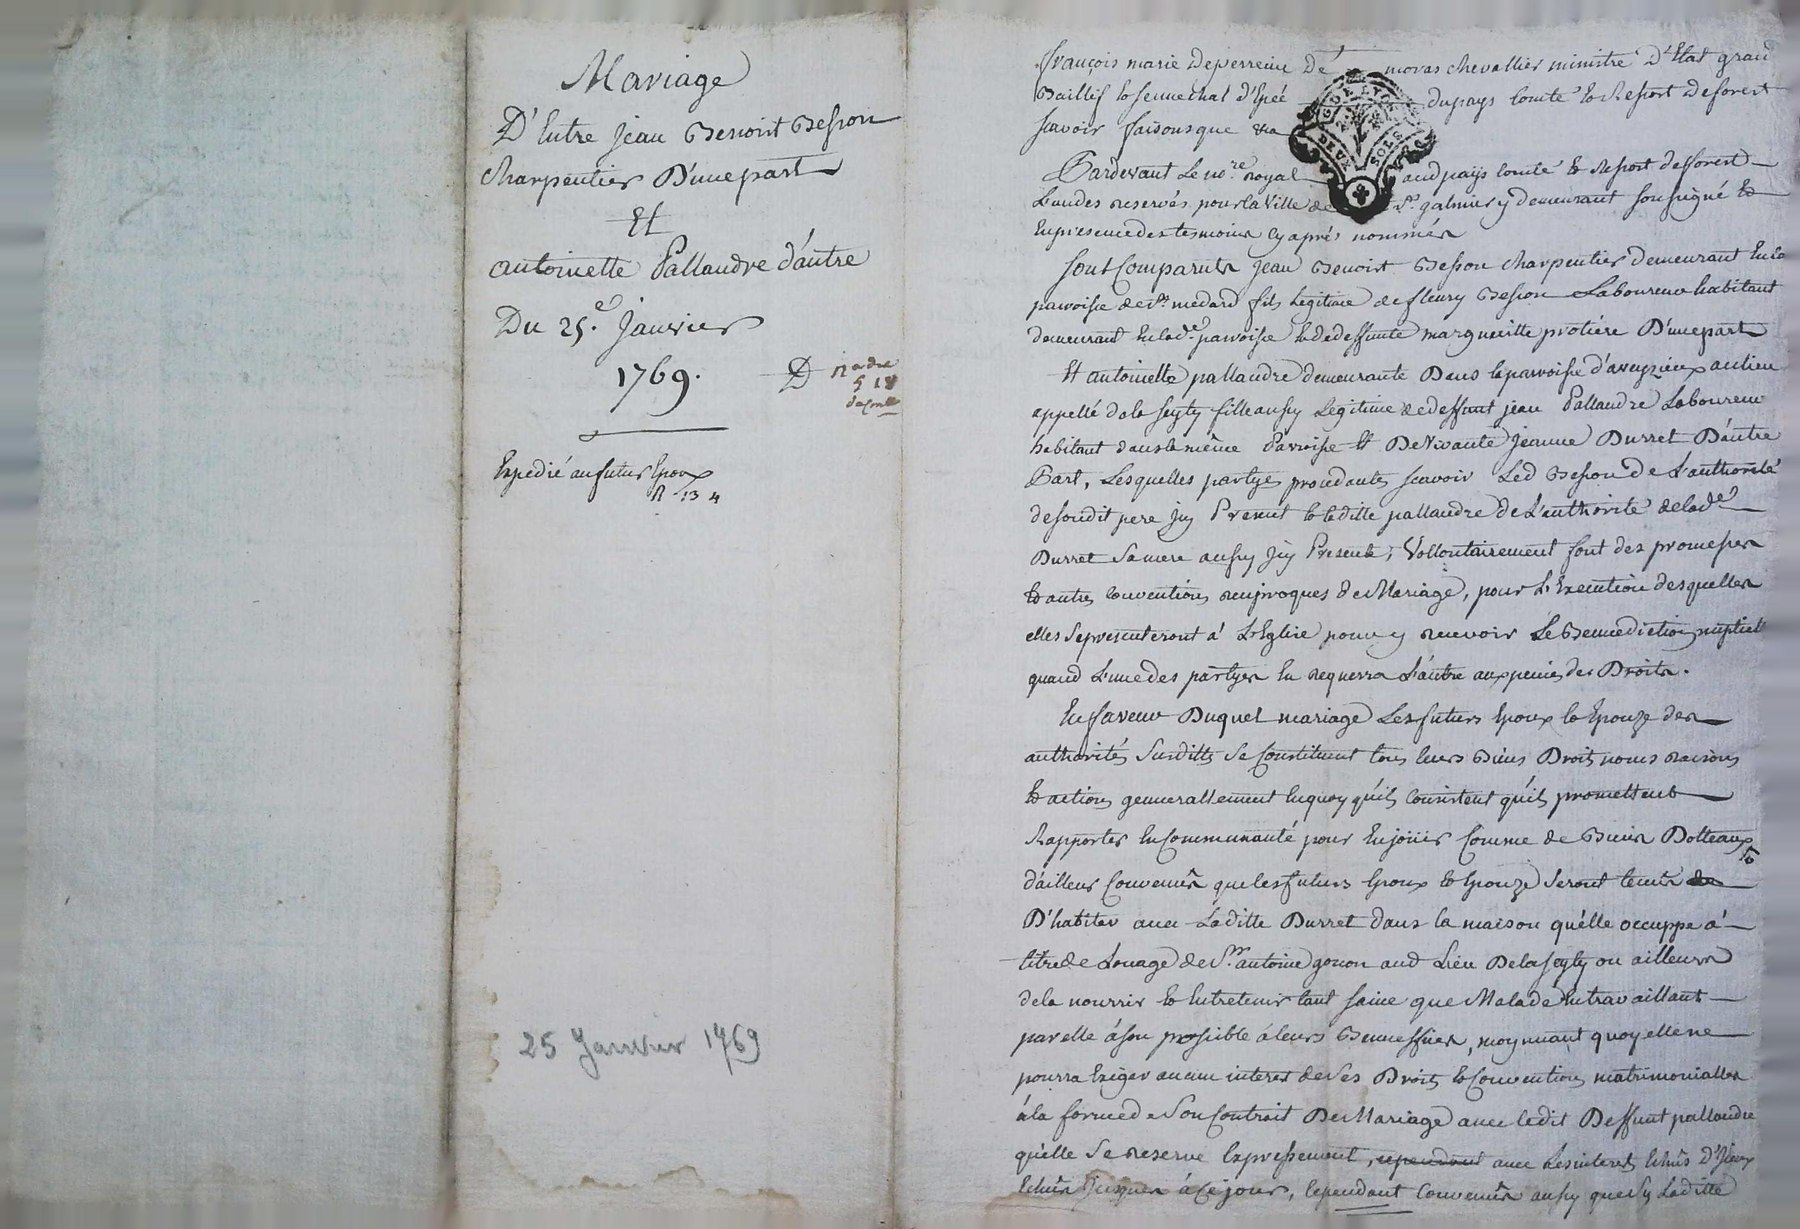 Mariage
D'Entre Jean Benoist Besson
charpentier D'une part
Et
antoinette Pallandre d'autre
Du 25.e Janvier
1769.
Expedié au futur Epoux
R 13 4
25 Janvier 1769
françois marie Deperreine De moras chevallier ministre D'Etat grand
Baillif & sennechal d'Epée du pays Comté & Ressort de forest
scavoir faisons que
DE LYON
DEUX SOLS
Pardevant Le no.re royal aud pays Comté & Ressort de forest
L'un des reservés pour la Ville de St. galmier y demeurant soussigné &
En presence des temoins cy aprés nommés
sont Comparuts Jean Benoist Besson charpentier demeurant En la
paroisse de St. medard fils Legitime de fleury Besson Laboureur habitant
demeurant En lade. parroisse & de deffunte margueritte protiére D'une part
Et antoinette pallandre demeurante Dans la parroisse d'aveyzieux au lieu
appellé de la feyty fille aussy Legitime de deffunt jean Pallandre Laboureur
habitant dans la même Parroisse Et De Vivante Jeanne Durret D'autre
Part, Lesquelles partyes procedantes scavoir Led Besson de L'authorité
de soudit pere Jcy Present & laditte pallandre De L'authorité de lade.
Durret sa mere aussy Jcy Presente, Vollontairement font des promesses
& autres Conventions reciproques de Mariage, pour L'Execution desquelles
elles se presenteront à L'Eglise pour y recevoir Le Bennediction nuptiel
quand L'une des partyes En requerra L'autre aux peines de Droits.
En faveur Duquel mariage Les futurs Epoux & Epouze des
authorités susdittes se Constituent tous leurs Biens Droits noms raisons
& actions generallement En quoy qu'ils Consistent qu'ils promettent
Rapporter En Communauté pour En joüir Comme de Biens Dotteaux
d'ailleur Convenus que les futurs Epoux & Epouze seront tenus
D'habiter avec Laditte Durret dans la maison qu'elle occuppe à
titre de Louage de Sr. antoine gonon aud Lieu De la feyty ou ailleurs
de la nourrir & Entretenir tant saine que Malade En travaillant
par elle à son possible à leurs Benneffices, moyennant quoy elle ne
pourra Exiger aucun interest de ses Droits & Conventions matrimonialles
à la forme de son Contrait De Mariage avec ledit Deffunt pallandre
qu'elle se reserve Expressement, cependant avec Les interets Echus
Echus Jusques à Ce jour, Cependant Convenus aussy que sy Laditte